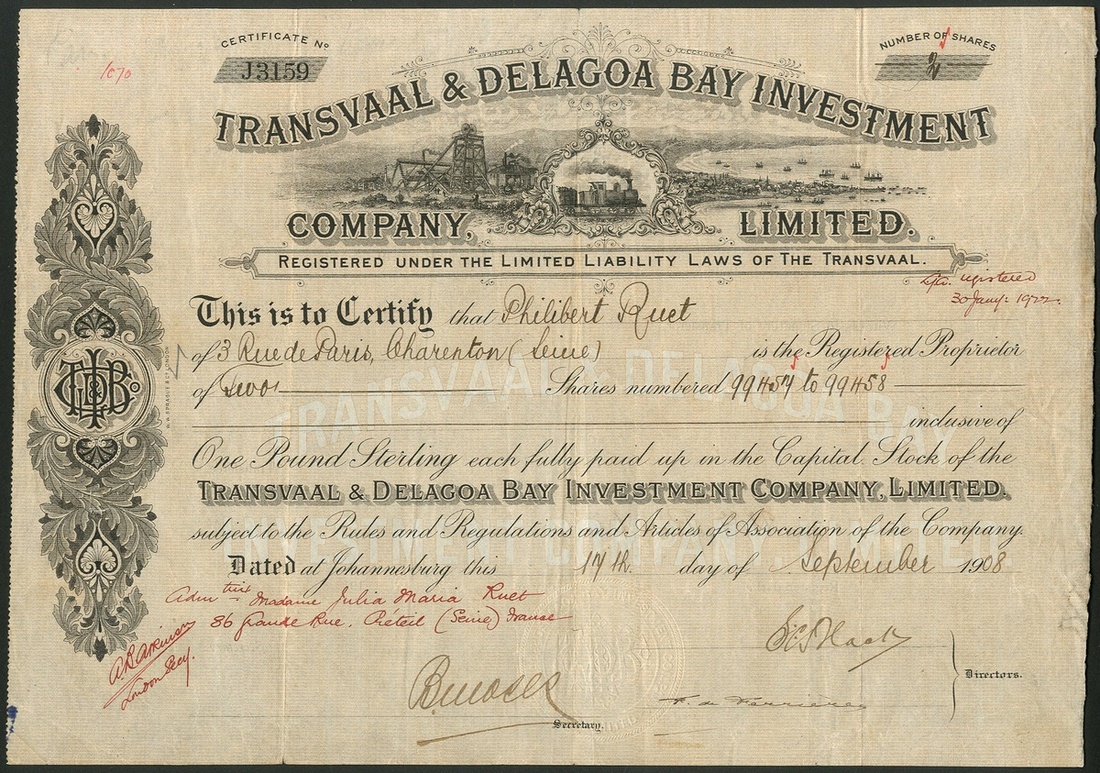 CERTIFICATE No
J3159
NUMBER OF SHARES
2
1070
TRANSVAAL & DELAGOA BAY INVESTMENT
COMPANY, LIMITED.
REGISTERED UNDER THE LIMITED LIABILITY LAWS OF THE TRANSVAAL.
registered
30 Jany: 1922
This is to Certify that Philibert Ruet
of 3 Rue de Paris, Charenton (Seine) is the Registered Proprietor
of Two Shares numbered 99457 to 99458
inclusive of
One Pound Sterling each fully paid up in the Capital Stock of the
TRANSVAAL & DELAGOA BAY INVESTMENT COMPANY, LIMITED.
subject to the Rules and Regulations and Articles of Association of the Company.
Dated at Johannesburg this 17th. day of September 1908.
Admtrix Madame Julia Maria Ruet
36 Grande Rue, Créteil (Seine) France
London Secy.
Secretary.
Directors.
TRANSVAAL & DELAGOA BAY
INVESTMENT COMPANY LIMITED.